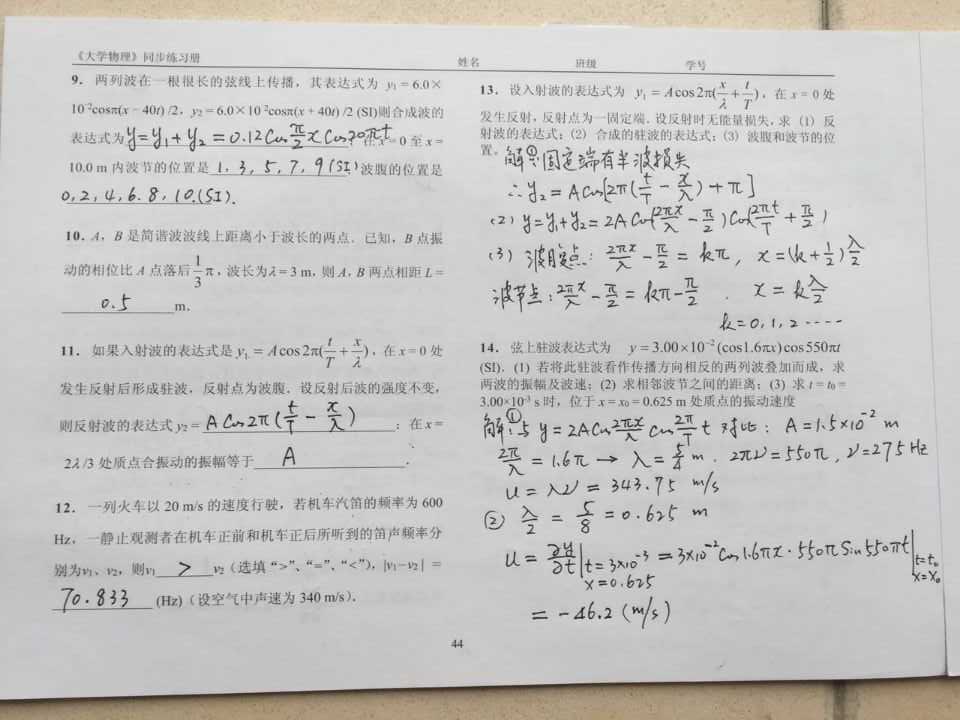 《大学物理》同步练习册 姓名 班级 学号
9. 两列波在一根很长的弦线上传播，其表达式为 y₁ = 6.0×
10⁻²cosπ(x − 40t) /2，y₂ = 6.0×10⁻²cosπ(x + 40t) /2 (SI)则合成波的
表达式为 y=y₁+y₂=0.12Cos π/2 x Cos20πt 在 x = 0 至 x =
10.0 m 内波节的位置是 1, 3, 5, 7, 9 (SI) 波腹的位置是
0, 2, 4, 6. 8, 10.(SI).
10. A，B 是简谐波波线上距离小于波长的两点．已知，B 点振
动的相位比 A 点落后 1/3 π，波长为 λ = 3 m，则 A，B 两点相距 L =
0.5 m.
11. 如果入射波的表达式是 y₁ = A cos 2π(t/T + x/λ)，在 x = 0 处
发生反射后形成驻波，反射点为波腹．设反射后波的强度不变，
则反射波的表达式 y₂ = A Cos 2π (t/T − x/λ) ；在 x =
2λ /3 处质点合振动的振幅等于 A .
12. 一列火车以 20 m/s 的速度行驶，若机车汽笛的频率为 600
Hz，一静止观测者在机车正前和机车正后所听到的笛声频率分
别为ν₁、ν₂，则ν₁ > ν₂（选填“>”、“=”、“<”），|ν₁−ν₂| =
70.833 (Hz)（设空气中声速为 340 m/s）.
13. 设入射波的表达式为 y₁ = A cos 2π(x/λ + t/T)，在 x = 0 处
发生反射，反射点为一固定端．设反射时无能量损失，求（1）反
射波的表达式；(2) 合成的驻波的表达式；(3) 波腹和波节的位
置。 解①固定端有半波损失
∴ y₂ = A Cos[2π(t/T − x/λ) + π]
(2) y=y₁+y₂=2A Cos(2πx/λ − π/2) Cos(2πt/T + π/2)
(3) 波腹点: 2πx/λ − π/2 = kπ, x = (k+1/2) λ/2
波节点: 2πx/λ − π/2 = kπ − π/2 . x = k λ/2
k = 0, 1, 2 ·····
14. 弦上驻波表达式为 y = 3.00×10⁻² (cos1.6πx) cos 550πt
(SI)．(1) 若将此驻波看作传播方向相反的两列波叠加而成，求
两波的振幅及波速；(2) 求相邻波节之间的距离；(3) 求 t = t₀ =
3.00×10⁻³ s 时，位于 x = x₀ = 0.625 m 处质点的振动速度
解:① 与 y = 2A Cos 2πx/λ Cos 2π/T t 对比: A = 1.5×10⁻² m
2π/λ = 1.6π → λ = 5/4 m. 2πν = 550π, ν = 275 Hz
u = λν = 343.75 m/s
② λ/2 = 5/8 = 0.625 m
u = ∂y/∂t | t = 3×10⁻³ x = 0.625 = 3×10⁻² Cos 1.6πx · 550π Sin 550πt | t = t₀ x = x₀
= −46.2 (m/s)
44